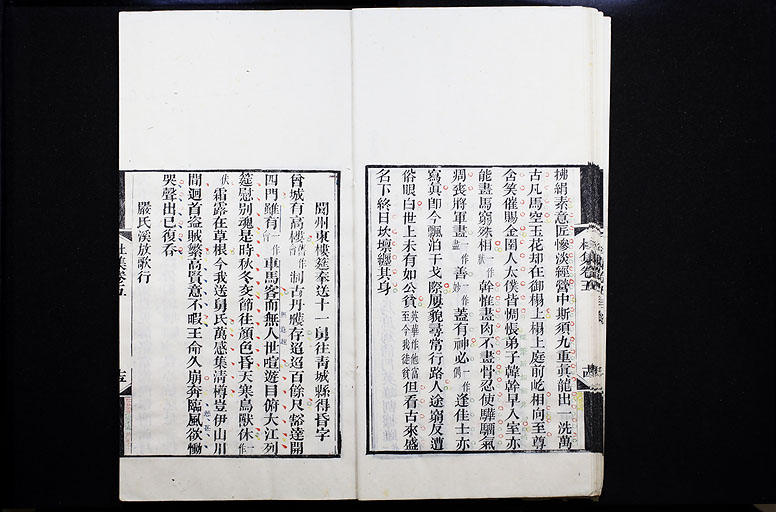 拂絹素意匠慘淡經營中斯須九重眞龍出一洗萬
古凡馬空玉花却在御榻上榻上庭前屹相向至尊
含笑催賜金圉人太僕皆惆悵弟子韓幹早入室亦
能畫馬窮殊相狀一作幹惟畫肉不畫骨忍使驊騮氣
凋喪將軍畫一作善畫妙蓋一作有神必一作逢佳士亦偶
寫眞即今飄泊干戈際屢貌尋常行路人途窮反遭
俗眼白世上未有如公貧英華作他富至今我徒貧但看古來盛
名下終日坎壈纏其身
閬州東樓筵奉送十一舅往青城縣得昏字
曾城有高樓舊作制古丹雘存迢迢百餘尺豁達開
四門雖有一作車馬客而無人世喧遊目俯大江列
筵慰別魂是時秋冬交節往顏色昏天寒鳥獸休一作
伏霜露在草根今我送舅氏萬感集清樽豈伊山川
間迴首盜賊繁高賢意不暇王命久崩奔臨風欲慟
哭聲出已復吞
嚴氏溪放歌行
杜集卷五